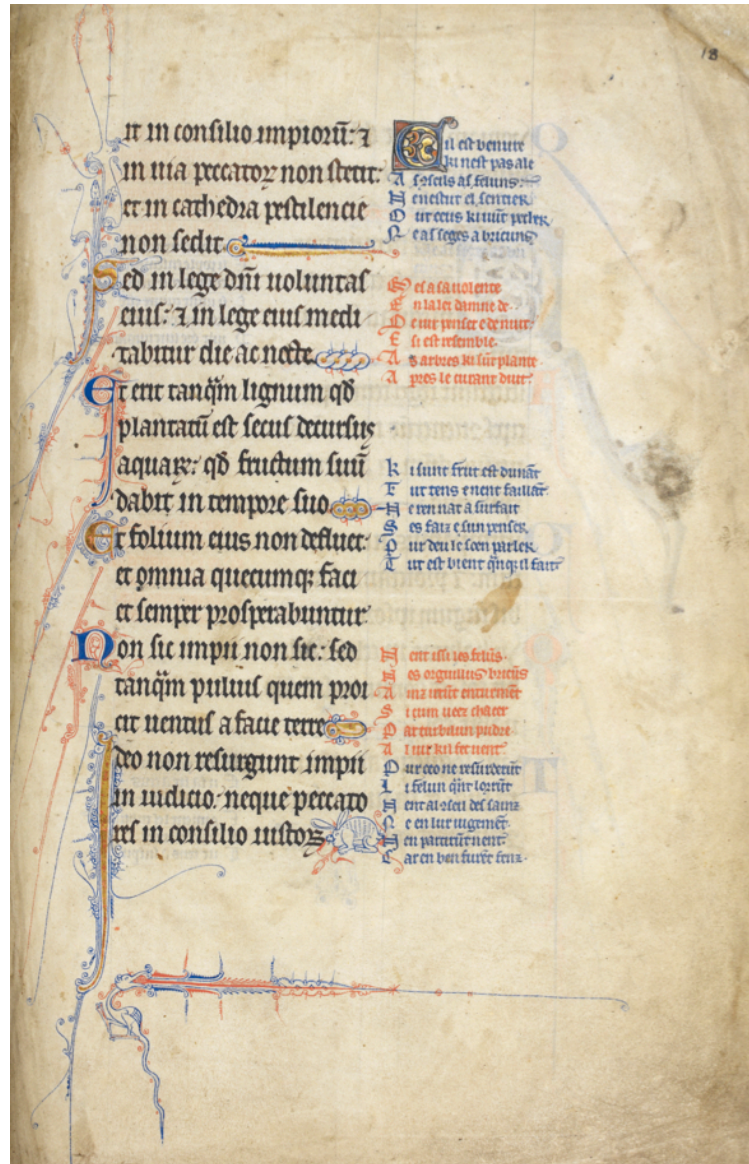 18
it in consilio impiorū: ⁊
in uia peccatoꝝ non stetit:
et in cathedra pestilencie
non sedit
Sed in lege dn̄i uoluntas
eius: ⁊ in lege eius medi
tabitur die ac nocte
Et erit tanq̄m lignum qd̄
plantatū est secus decursus
aquaꝝ: qd̄ fructum suū
dabit in tempore suo
Et folium eius non defluet:
et omnia quecumqꝫ faci
et semper prosperabuntur
Non sic impii non sic: sed
tanq̄m puluis quem proi
cit uentus a facie terre
Ideo non resurgunt impii
in iudicio: neque peccato
res in consilio iustoꝝ
Cil est benure
ki nest pas ale
A feluns
H el sentier
O ki
N
S es a sa uolente
E n la lei damne de
D e iur penser e de nuit
E si est resemble
A s arbres ki sūt plante
A pres le curant duit
K i sunt frut est dunāt
E ur tens e nent faillāt
H e ren nat a surfait
S es faiz e sun penser
P ur deu le parler
T ut est bient qn̄qꝫ il fait
N ent issi les feluns
L es orguillus bricuns
A inz
S i cum ueez chacer
P ar pudre
A l uir kil fet uent
P ur ceo ne resurderūt
L i felun
N ent al des sainz
N e en lur iugemēt
N en partirūt nent